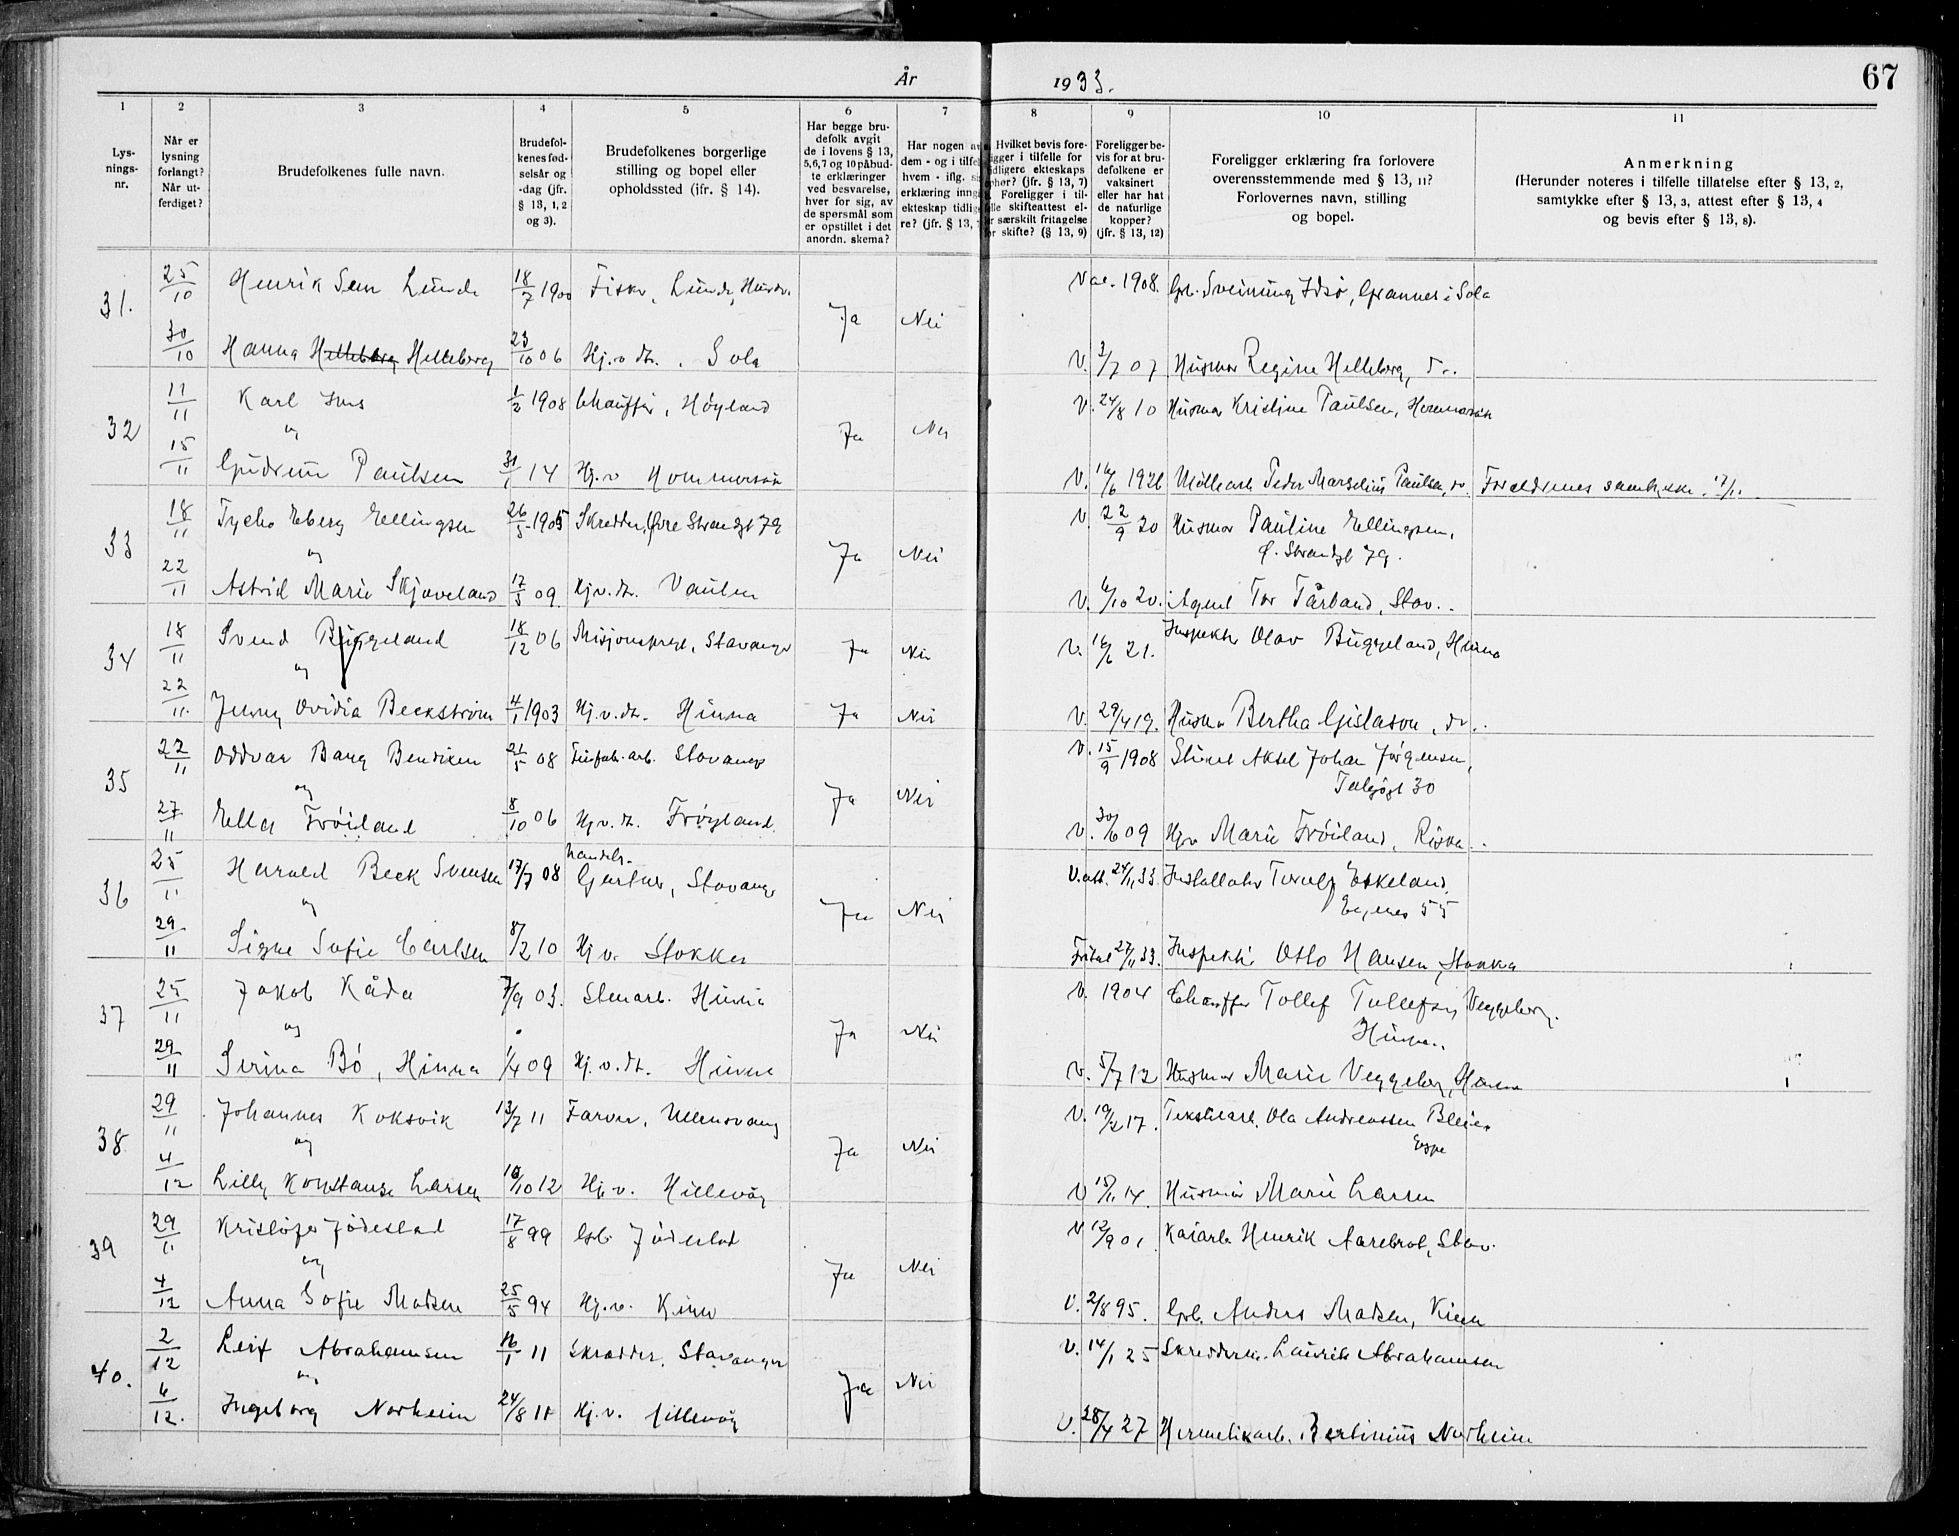 År 1933.
67
1
2
3
4
5
6
7
8
9
10
11
Lys-
nings-
nr.
Når er
lysning
forlangt?
Når ut-
ferdiget?
Brudefolkenes fulle navn.
Brudefol-
kenes fød-
selsår og
-dag (jfr.
§ 13, 1, 2
og 3).
Brudefolkenes borgerlige
stilling og bopel eller
opholdssted (ifr. § 14).
Har begge bru-
defolk avgit
de i lovens § 13,
5, 6, 7 og 10 påbud-
te erklæringer
ved besvarelse,
hver for sig, av
de spørsmål som
er opstillet i det
anordn. skema?
Har nogen av
dem - og i tilfel
hvem - iflg. s
erklæring inng
ekteskap tidlig
re? (jfr. § 13,
Hvilket bevis fore-
igger i tilfelle for
idligere ekteskaps
phør? (jfr. § 13, 7)
Foreligger i til-
elle skifteattest el-
r særskilt fritagelse
or skifte? (§ 13, 9)
Foreligger be-
vis for at bru-
defolkene er
vaksinert
eller har hat
de naturlige
kopper?
(jfr. § 13, 12)
Foreligger erklæring fra forlovere
overensstemmende med § 13, 11?
Forlovernes navn, stilling
og bopel.
Anmerkning
(Herunder noteres i tilfelle tillatelse efter § 13, 2,
samtykke efter § 13, 3, attest efter § 13, 4
og bevis efter § 13, 8).
31. 25/10 Henrik Sem Lunde 18/7 1900 Fisker, Lunde, Ja Nei Vac. 1908. Grb. Sveinung Idsø, Grannes i Sola
30/10 Hanna Helleberg Helleberg 23/10 06 Hj.v. dt. Sola V. 3/7 07 Husmor Regine Helleberg,
32 11/11 Karl Ims 1/2 1908 Chauffør, Høyland Ja Nei V. 24/8 10 Husmor Kristine Paulsen, Hommersåk
og
15/11 Gudrun Paulsen 31/1 14 Hj.v. Hommersåk V. 16/6 1926 Peder Marselius Paulsen, do. Foreldrenes samtykke
33 18/11 Tycho Eberg Ellingsen 26/5 1905 Skredder, Øvre Strandgt 79 Ja Nei V. 22/9 20 Husmor Pauline Ellingsen,
og Ø. Strandgt 79.
22/11 Astrid Marie Skjæveland 17/5 09. Hj.v. dt. Vaulen V. 6/10 20. Agent Tor Tårland, Stav.
34 18/11 Svend Buggeland 18/12 06 Misjonsprest, Stavanger Ja Nei V. 16/6 21. Inspektør Olav Buggeland, Hinna
og
22/11. Jenny Ovidia Beckstrøm 4/1 1903 Hj.v. dt. Hinna Ja Nei V. 29/4 19. Husmor Bertha Gislason, do.
35 22/11 Oddvar Bang Bendixen 21/5 08 Stavanger Ja Nei V. 15/9 1908 Aksel Johan Jørgensen,
og Talgøgt 30
27/11 Ella Frøiland 8/10 06 Hj.v. dt. Frøyland. V. 30/6 09 Hjv. Marie Frøiland, Riska.
36 25/11 Harald Beck Svensen 17/7 08 handels-
Gartner, Stavanger Ja Nei V.att. 24/11 33. Installatør Torolf Eskeland,
og Egenes 55
29/11 Signe Sofie Carlsen 8/2 10 Hj.v. Stokka Fritat 27/11 33. Inspektør Otto Hansen, Stokka
37 25/11 Jakob Kåda 7/9 03. Stenarb. Hinna Ja Nei V. 1904 Chauffør Tollef Tollefsen Veggeberg,
og Hinna.
29/11 Serina Bø, Hinna 1/4 09 Hj.v. dt. Hinna V. 5/7 12 Husmor Marie Veggeberg, Hinna
38 29/11 Johannes Koksvik 13/7 11 Farver, Ullensvang Ja Nei V. 19/2 17. Tekstilarb. Ola Andreassen Bleie,
og Espe
4/12 Lilly Konstanse Larsen 10/10 12 Hj.v. Hillevåg V 15/1 14. Husmor Marie Larsen
39 29/11 Kristofer Jødestad 17/8 99 Grb. Jødestad Ja Nei V 12/9 01. Kaiarb. Henrik Aarebrot, Stav.
og
4/12 Anna Sofie Madsen 25/5 94 Hj.v. Kinn V. 2/8 95. Grb. Anders Madsen, Kinn
40. 2/12 Leif Abrahamsen 16/1 11 Skrædder, Stavanger Ja Nei V. 14/1 25 Skredderm. Laurits Abrahamsen
og
6/12. Ingeborg Norheim 24/8 11 Hj.v. Hillevåg V. 28/4 27 Hermetikarb. Bertinius Norheim